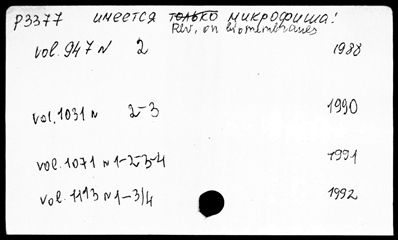 Р3377 имеется только микрофиша!
Rev. on biomembranes
vol. 947 N 2 1988
vol. 1031 N 2-3 1990
vol. 1071 N 1-2-3-4 1991
vol. 1113 N 1-3/4 1992